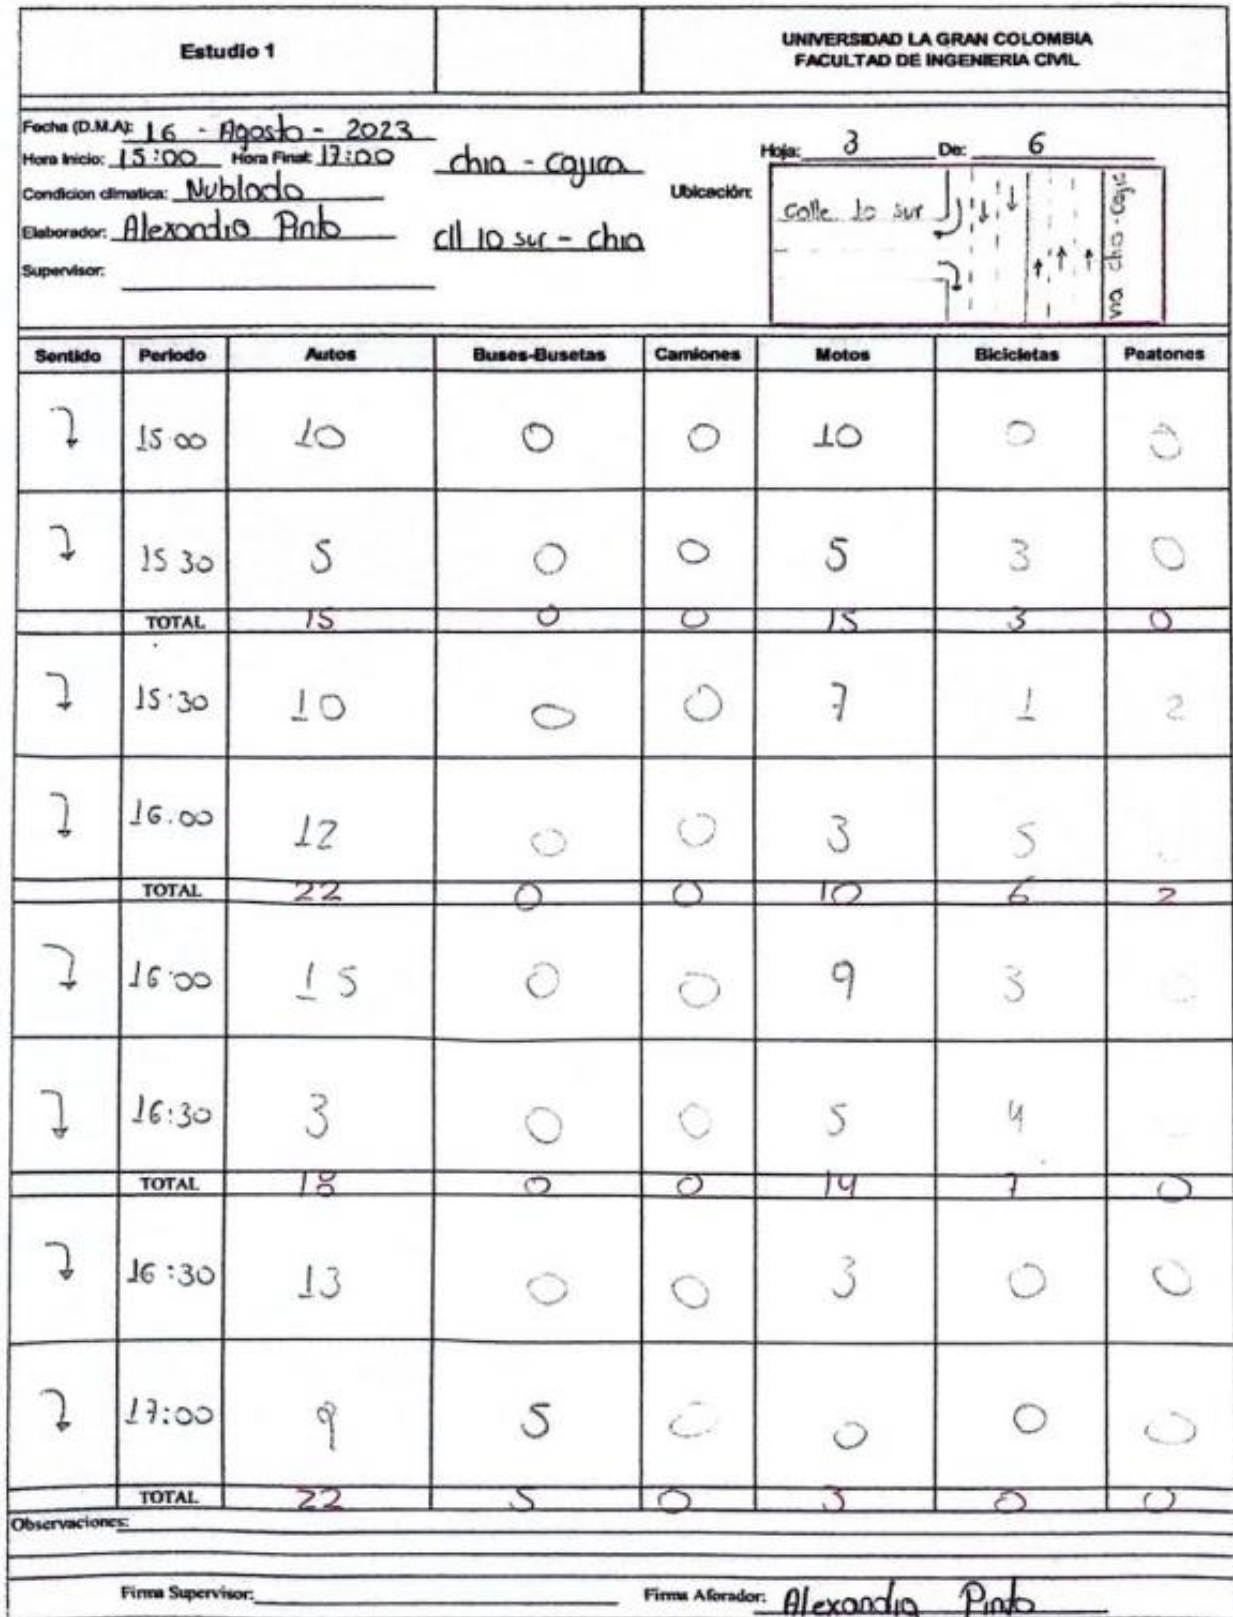 Estudio 1
UNIVERSIDAD LA GRAN COLOMBIA
FACULTAD DE INGENIERIA CIVIL
Fecha (D.M.A): 16 - Agosto - 2023
Hora Inicio: 15:00 Hora Final: 17:00
Condicion climatica: Nublado
Elaborador: Alexandra Pinto
Supervisor:
chia - cajica
cll 10 sur - chia
Hoja: 3 De: 6
Ubicación:
calle 10 sur
via chia - cajic
Sentido Periodo Autos Buses-Busetas Camiones Motos Bicicletas Peatones
15:00 10 0 0 10 0 0
15 30 5 0 0 5 3 0
TOTAL 15 0 0 15 3 0
15:30 10 0 0 7 1 2
16:00 12 0 0 3 5
TOTAL 22 0 0 10 6 2
16:00 15 0 0 9 3 0
16:30 3 0 0 5 4
TOTAL 18 0 0 14 7 0
16:30 13 0 0 3 0 0
17:00 9 5 0 0 0 0
TOTAL 22 5 0 3 0 0
Observaciones:
Firma Supervisor: Firma Aforador: Alexandra Pinto